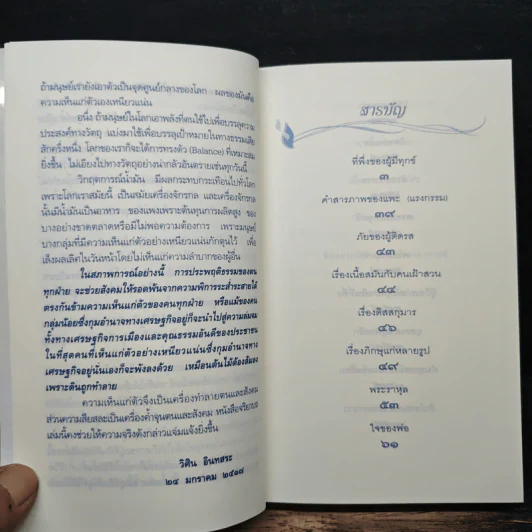 ถ้ามนุษย์เรายังเอาตัวเป็นจุดศูนย์กลางของโลก ผลของมันคือ
ความเห็นแก่ตัวเองเหนียวแน่น
อนึ่ง ถ้ามนุษย์ในโลกเอาพลังที่ตนใช้ไปเพื่อบรรลุความ
ประสงค์ทางวัตถุ แบ่งมาใช้เพื่อบรรลุเป้าหมายในทางธรรมเสีย
สักครึ่งหนึ่ง โลกของเราก็จะได้การทรงตัว (Balance) ที่เหมาะสม
ยิ่งขึ้น ไม่เอียงไปทางวัตถุอย่างน่ากลัวอันตรายเช่นทุกวันนี้
วิกฤตการณ์น้ำมัน มีผลกระทบกระเทือนไปทั่วโลก
เพราะโลกเราสมัยนี้ เป็นสมัยเครื่องจักรกล และเครื่องจักรกล
นั้นมีน้ำมันเป็นอาหาร ของแพงเพราะต้นทุนการผลิตสูง ของ
บางอย่างขาดตลาดหรือมีไม่พอความต้องการ เพราะมนุษย์
บางกลุ่มที่มีความเห็นแก่ตัวอย่างเหนียวแน่นกักตุนไว้ เพื่อ
เสี่ยงผลเลิศในวันหน้าโดยไม่เห็นแก่ความลำบากของผู้อื่น
ในสภาพการณ์อย่างนี้ การประพฤติธรรมของคน
ทุกฝ่าย จะช่วยสังคมให้รอดพ้นจากความพิการระส่ำระสายได้
ตรงกันข้ามความเห็นแก่ตัวของคนทุกฝ่าย หรือแม้ของคน
กลุ่มน้อยซึ่งกุมอำนาจทางเศรษฐกิจอยู่ก็จะนำไปสู่ความล่มจม
ทั้งทางเศรษฐกิจการเมืองและคุณธรรมอันดีของประชาชน
ในที่สุดคนที่เห็นแก่ตัวอย่างเหนียวแน่นซึ่งกุมอำนาจทาง
เศรษฐกิจอยู่นั้นเองก็จะพังลงด้วย เหมือนต้นไม้ต้องล้มลง
เพราะดินถูกทำลาย
ความเห็นแก่ตัวจึงเป็นเครื่องทำลายตนและสังคม
ส่วนความเสียสละเป็นเครื่องค้ำจุนตนและสังคม หนังสือจริยาบถ
เล่มนี้คงช่วยให้ความจริงดังกล่าวแจ่มแจ้งยิ่งขึ้น
วศิน อินทสระ
๒๔ มกราคม ๒๕๑๗
สารบัญ
ที่พึ่งของผู้มีทุกข์
๓
คำสารภาพของแพะ (แรงกรรม)
๓๙
ภัยของผู้ติดรส
๔๓
เรื่องเนื้อสมันกับคนเฝ้าสวน
๔๔
เรื่องติสสกุมาร
๔๖
เรื่องภิกษุแก่หลายรูป
๔๙
พระราหุล
๕๓
ใจของพ่อ
๖๑